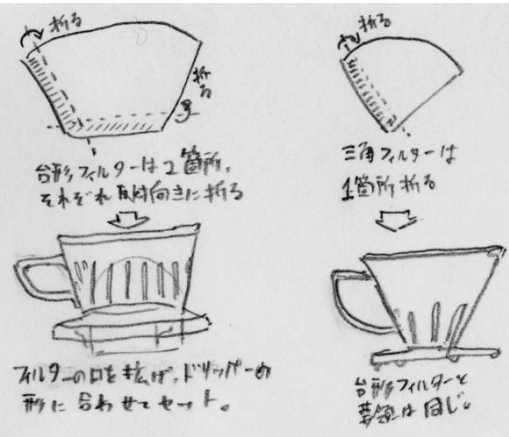 折る
折る
台形フィルターは2箇所、
それぞれ反対向きに折る
フィルターの口を拡げ、ドリッパーの
形に合わせてセット。
折る
三角フィルターは
1箇所折る
台形フィルターと
要領は同じ。